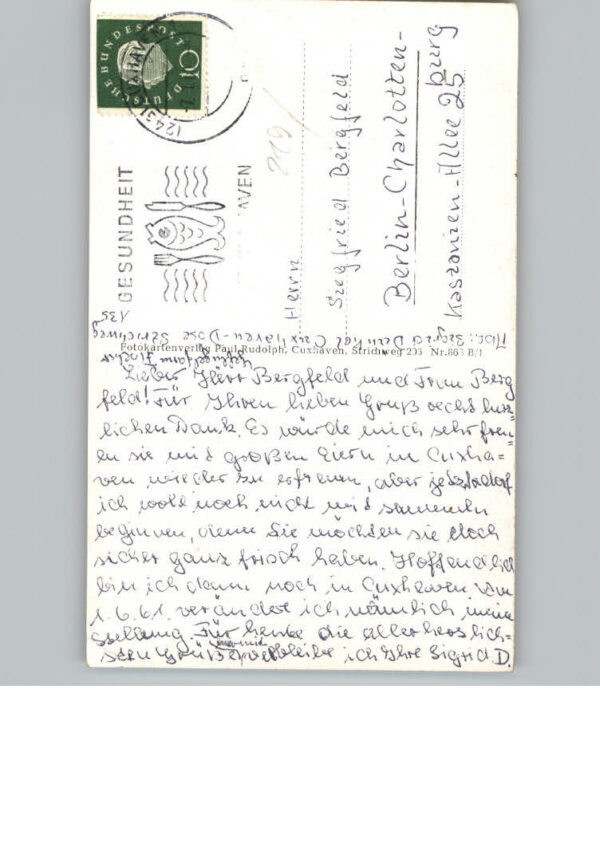 DEUTSCHE BUNDESPOST
10
(24a)
GESUNDHEIT
HAVEN
219
Herrn
Siegfried Bergfeld
Berlin-Charlotten-
burg
Kastanien-Allee 25
Abs.: Sigrid Cuxhaven-Dose Strichweg
135
Fotokartenverlag Paul Rudolph, Cuxhaven, Strichweg 205 Nr. 863 B/1
Lieber Herr Bergfeld und Frau Berg
feld! Für Ihren lieben Gruß recht herz-
lichen Dank. Es würde mich sehr freu-
en sie mit großen Eiern in Cuxha-
ven wieder zu erfreuen, aber jetzt darf
ich wohl noch nicht mit sammeln
beginnen, denn Sie möchten sie doch
sicher ganz frisch haben. Hoffendlich
bin ich dann noch in Cuxhaven. Am
1.6.61. verändere ich nämlich meine
Stellung. Für heute die allerherzlich-
sten Grüße verbleibe ich Ihre Sigrid D.